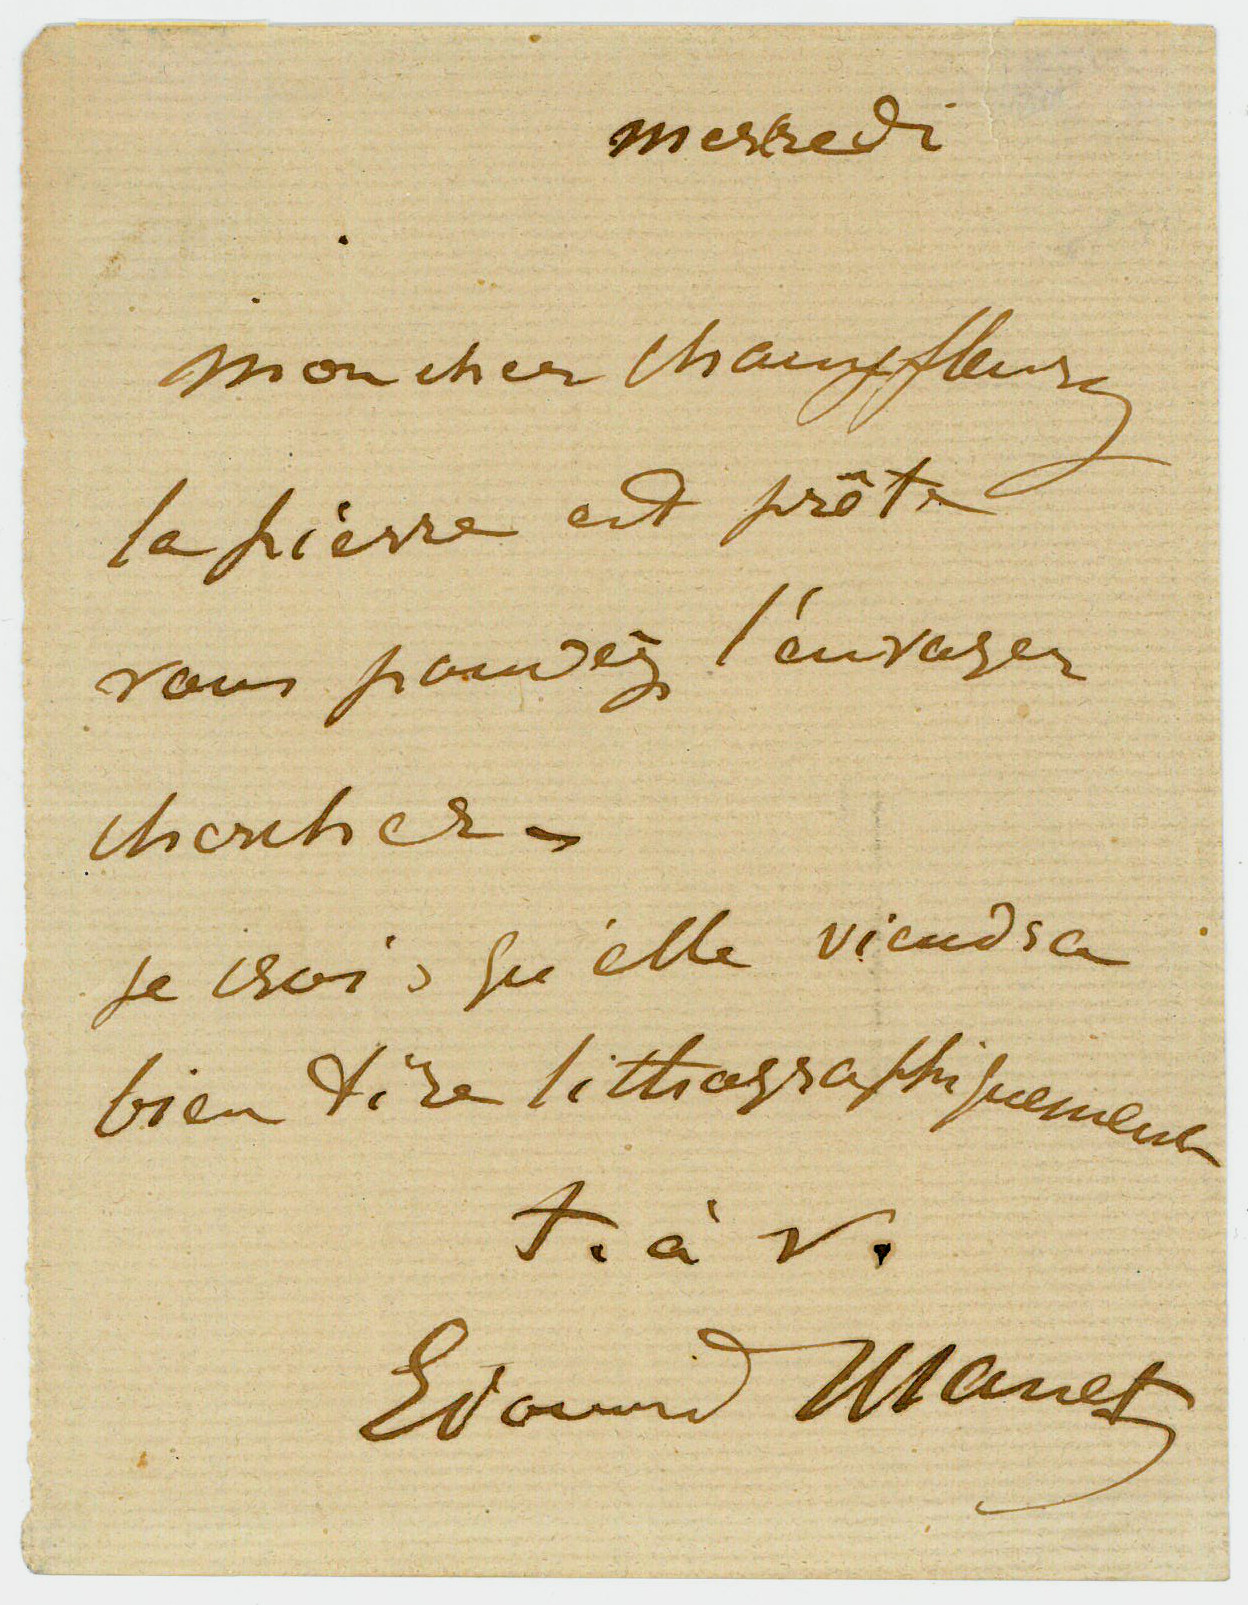 mercredi
mon cher Champfleury
la pierre est prête
vous pouvez l'envoyer
chercher –
je crois qu'elle viendra
bien tirée lithographiquement
t. à v.
Edouard Manet